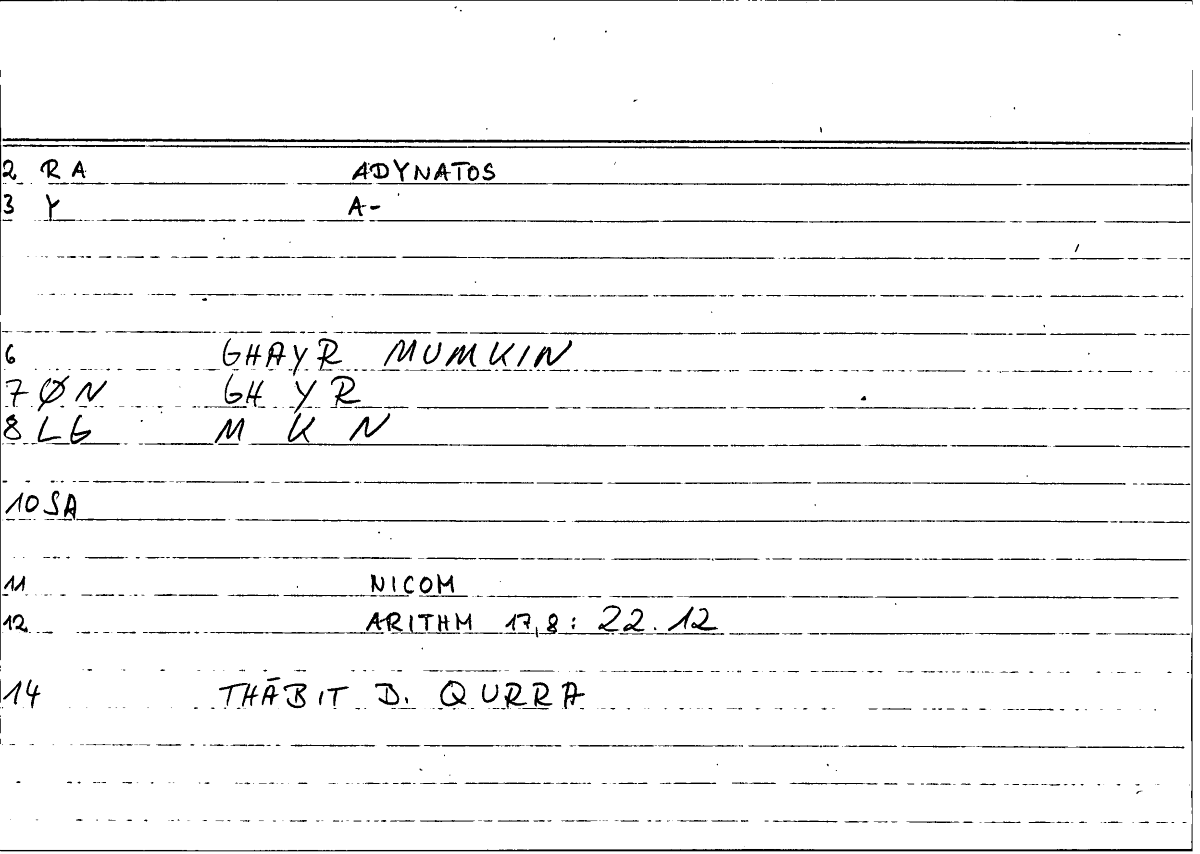 2 RA ADYNATOS
3 Y A-
6 GHAYR MUMKIN
7 ØN GH Y R
8 LG M K N
10 SA
11 NICOM
12 ARITHM 17,8: 22.12
14 THĀBIT D. QURRA